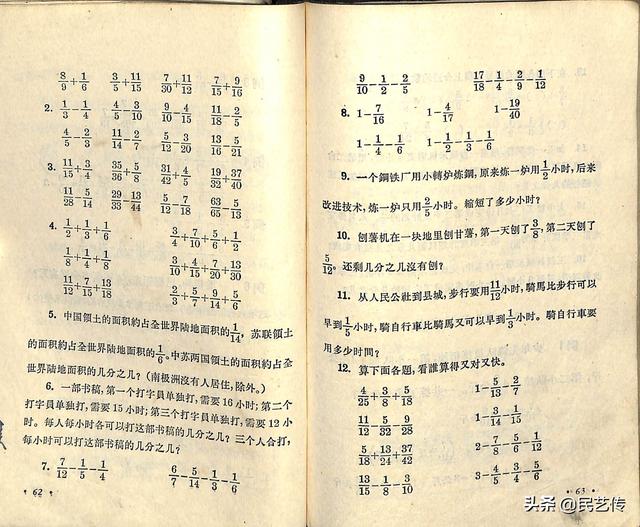 8/9+1/6 3/5+11/15 7/30+11/12 7/15+9/16
2. 1/3-1/4 4/5-3/10 9/10-4/15 11/18-2/5
4/5-2/3 11/14-2/7 5/12-3/20 13/16-5/21
3. 11/15+3/4 35/36+5/8 31/42+4/5 19/32+37/40
11/28-5/14 29/33-13/44 5/12-7/18 63/65-5/13
4. 1/2+1/3+1/6 3/4+7/10+5/6+1/2
1/8+1/4+1/8 3/10+4/15+7/20+13/30
11/12+7/15+13/18 2/3+5/7+9/14+5/6
5. 中国領土的面积約占全世界陆地面积的1/14, 苏联領土
的面积約占全世界陆地面积的1/6。中苏两国領土的面积約占全
世界陆地面积的几分之几? (南极洲沒有人居住,除外。)
6. 一部书稿,第一个打字員单独打,需要16小时;第二个
打字員单独打,需要15小时;第三个打字員单独打,需要12小
时。每人每小时各可以打这部书稿的几分之几? 三个人合打,
每小时可以打这部书稿的几分之几?
7. 7/12-1/5-1/4 6/7-5/14-1/3-1/6
• 62 •
9/10-1/2-2/5 17/18-1/4-2/9-1/12
8. 1-7/16 1-4/17 1-19/40
1-1/4-1/6 1-1/2-1/3-1/6
9. 一个鋼铁厂用小轉炉炼鋼,原来炼一炉用1/2小时,后来
改进技术,炼一炉只用2/5小时。縮短了多少小时?
10. 刨薯机在一块地里刨甘薯,第一天刨了3/8,第二天刨了
5/12。还剩几分之几沒有刨?
11. 从人民公社到县城,步行要用11/12小时,騎馬比步行可以
早到1/5小时,騎自行車比騎馬又可以早到1/3小时。騎自行車要
用多少时間?
12. 算下面各題,看誰算得又对又快。
4/25+3/8+5/18 1-5/13-2/7
11/12-5/32-9/28 1-3/14-1/15
5/18+13/24+37/42 2-7/8-5/6-1/12
13/15-1/8-3/10 3-4/5-3/4-5/6
• 63 •
头条 @民艺传